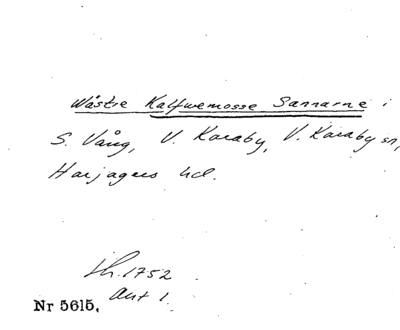 Wästre Kalfwemosse Sannarne i
S. Vång, V. Karaby, V. Karaby sn,
Harjagers hd.
Lh. 1752
Akt 1.
Nr 5615,